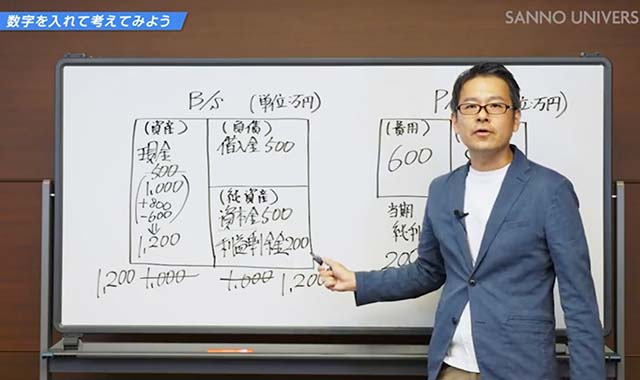 数字を入れて考えてみよう
SANNO UNIVERS
B/S (単位:万円)
(資産)
現金
500
1,000
+800
-600
⇓
1,200
(負債)
借入金 500
(純資産)
資本金500
利益剰余金200
1,200 1,000 1,000 1,200
P 万円)
(費用)
600
当期
純利
200